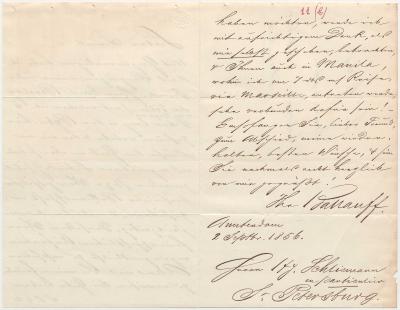 11 (2)
haben möchten, werde ich
mit aufrichtigem Dank, als
mir selbst geschehen, betrachten,
& Ihnen auch in Manila,
wohin ich am 7 die Reise
via Marseille, antreten werde,
sehr verbunden dafür sein! –
Empfangen Sie, lieber Freund,
zum Abschied, meine wieder-
halten, besten Wünsche, & sein
Sie nochmals recht herzlich
von mir gegrüßt!
Ihr
Amsterdam
2 Septbr. 1856.
Herrn Hy. Schliemann
in particulier
St. Petersburg.